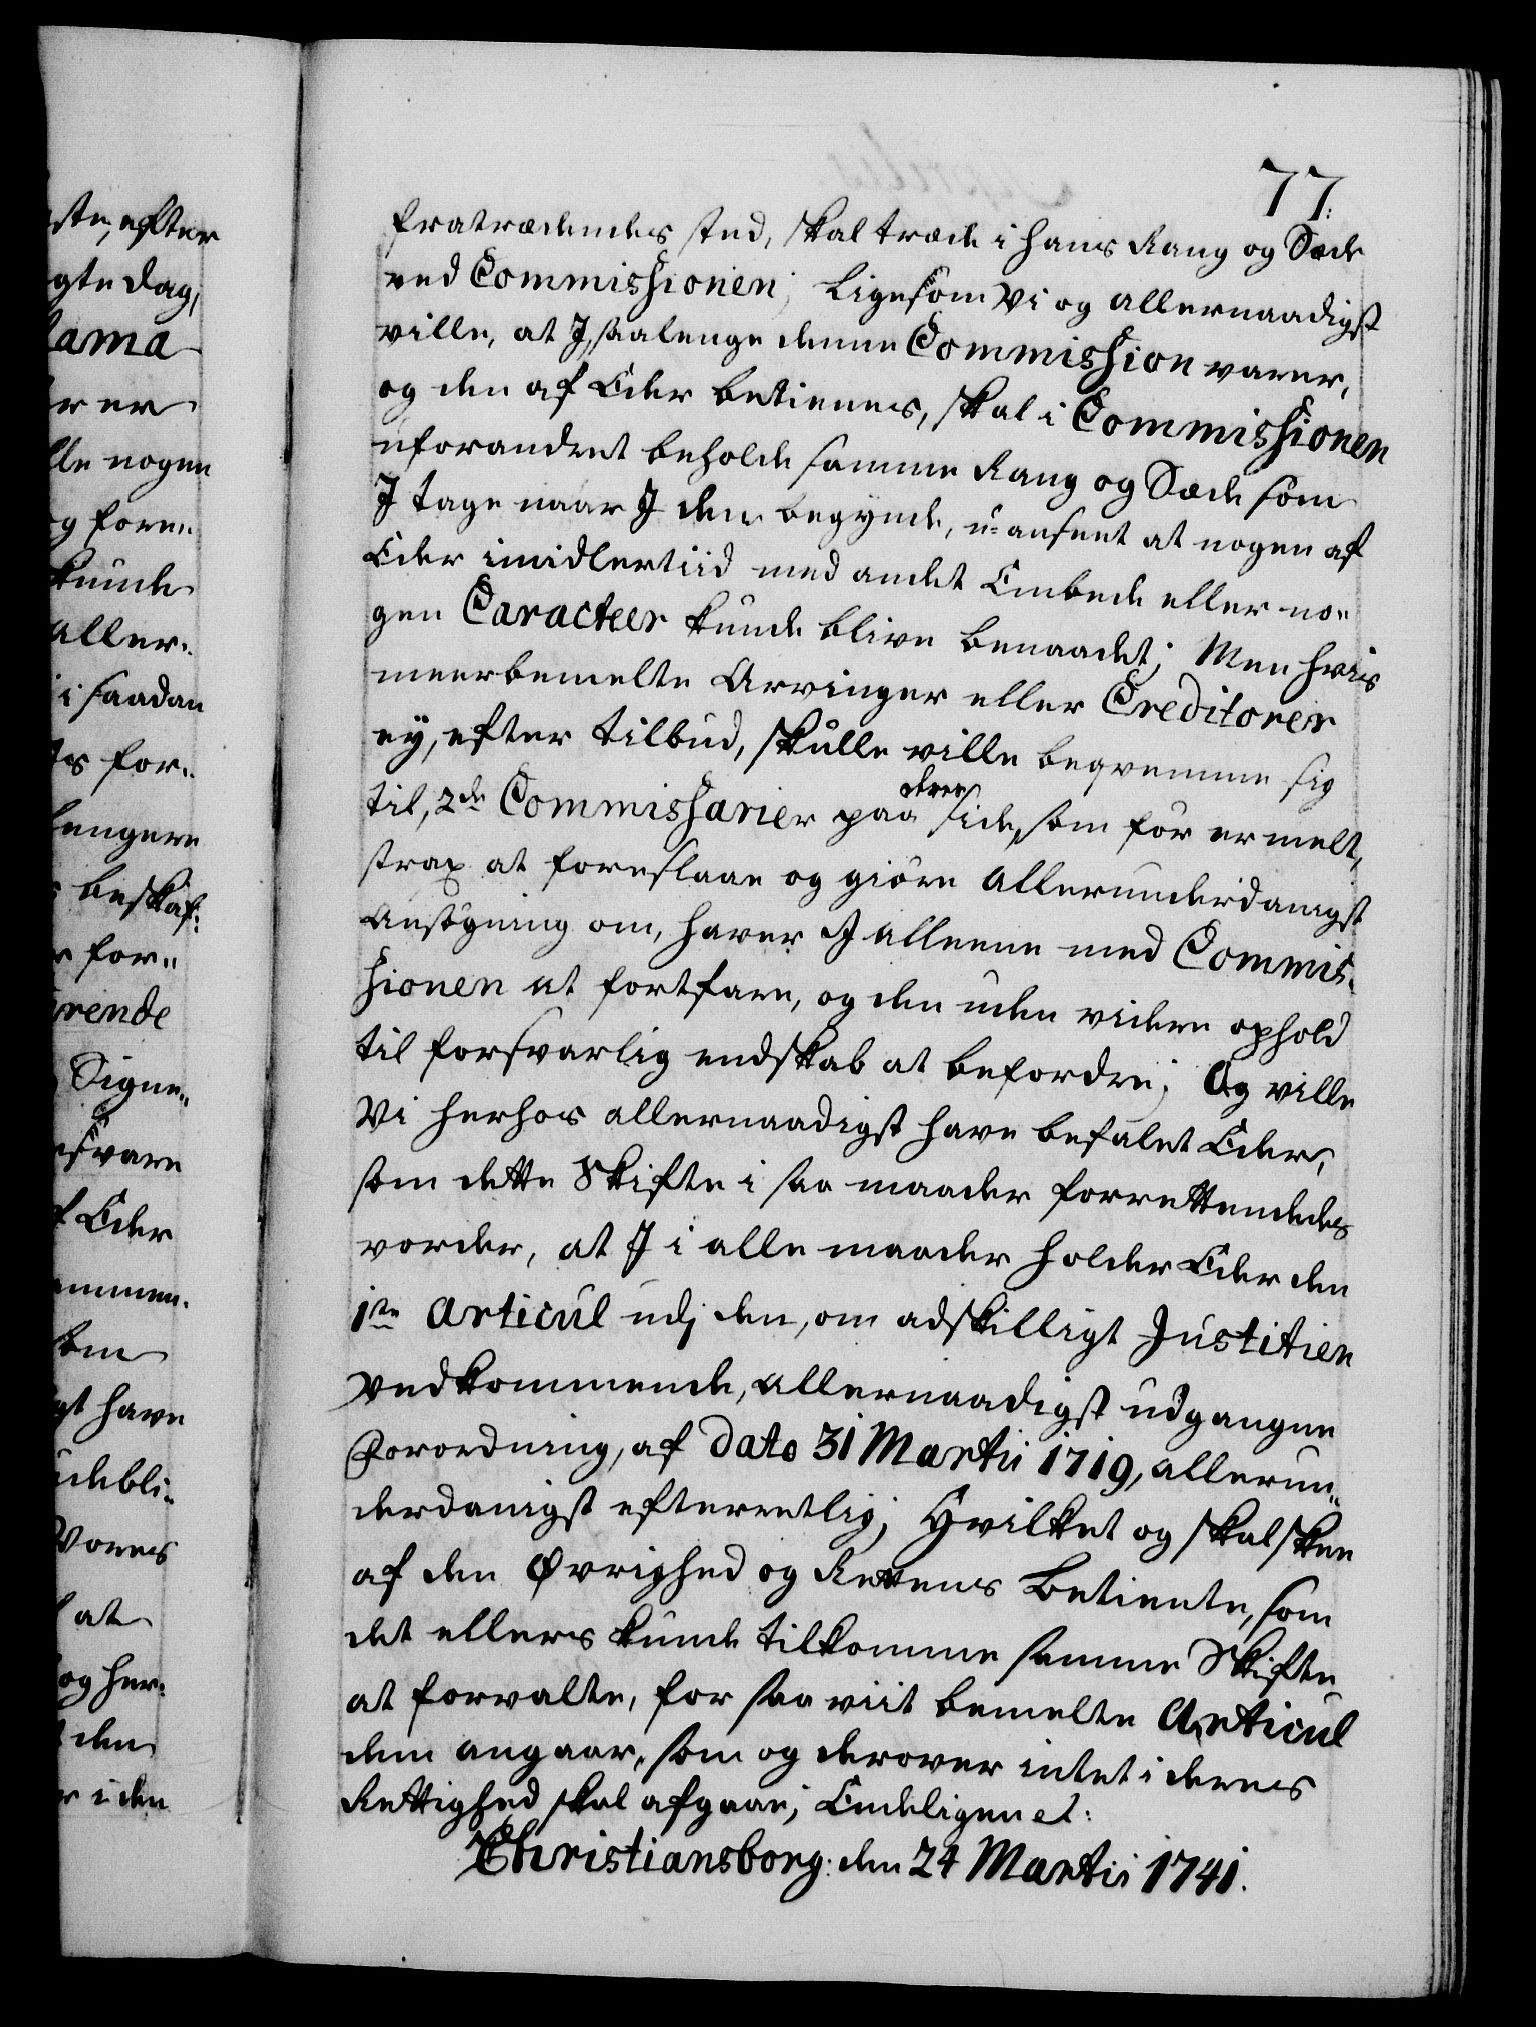 77.
fratrædendes sted, skal træde i hans Rang og Sæde
ved Commissionen; ligesom Vi og allernaadigst
ville, at J, saalenge denne Commission varer,
og den af Eder betienes, skal i Commissionen
uforandret beholde samme Rang og Sæde som
J tage naar J den begynde, u-anseet at nogen af
Eder imidlertiid med andet Embede eller no-
gen Caracteer kunde blive benaadet; Men hvis
meerbemelte Arvinger eller Creditorer
ey, efter tilbud, skulle ville beqvemme sig
til, 2de Commissarier paa deres side, som før er melt,
strax at foreslaae og giøre allerunderdanigst
Ansøgning om, haver J alleene med Commis-
sionen at fortfare, og den uden videre ophold
til forsvarlig endskab at befordre; Og ville
Vi herhos allernaadigst have befalet Eder,
som dette Skifte i saa maader forrettendes
vorder, at J i alle maader holder Eder den
1te Articul udj den, om adskilligt Justitien
vedkommende, allernaadigst udgangne
Forordning, af dato 31 Martii 1719, allerun-
derdanigst efterretlig; Hvilket og skal skee
af den Øvrighed og Rettens Betiente, som
det ellers kunde tilkomme samme Skifte
at forvalte, for saa viit bemelte Articul
dem angaar, som og derover intet i deres
Rettighed skal afgaae; Endeligen et:
Christiansborg: den 24 Martii 1741.
ste, efter
gte dag,
lama
er er
lle nogen
og fore-
kunde
aller-
i saadan
ts for-
lengere
beskaf-
r for-
rende
Signe-
svare
f Eder
ammen-
som
gt have
udebli-
Vores
l at
og her-
t den
r i den